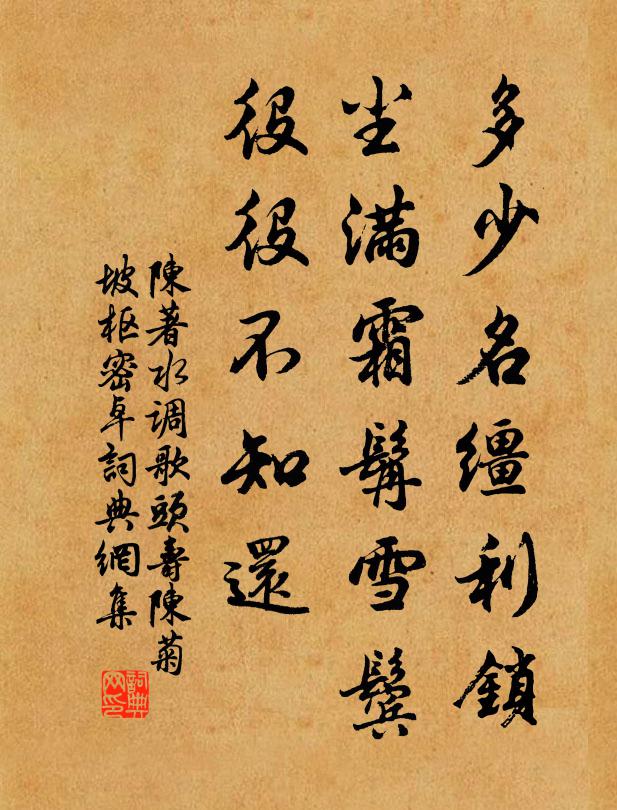 多少名繮利鎖
尘滿霜髯雪鬢
役役不知還
陳著水调歌頭壽陳菊
坡枢密卓詞典網集
詞典
网印